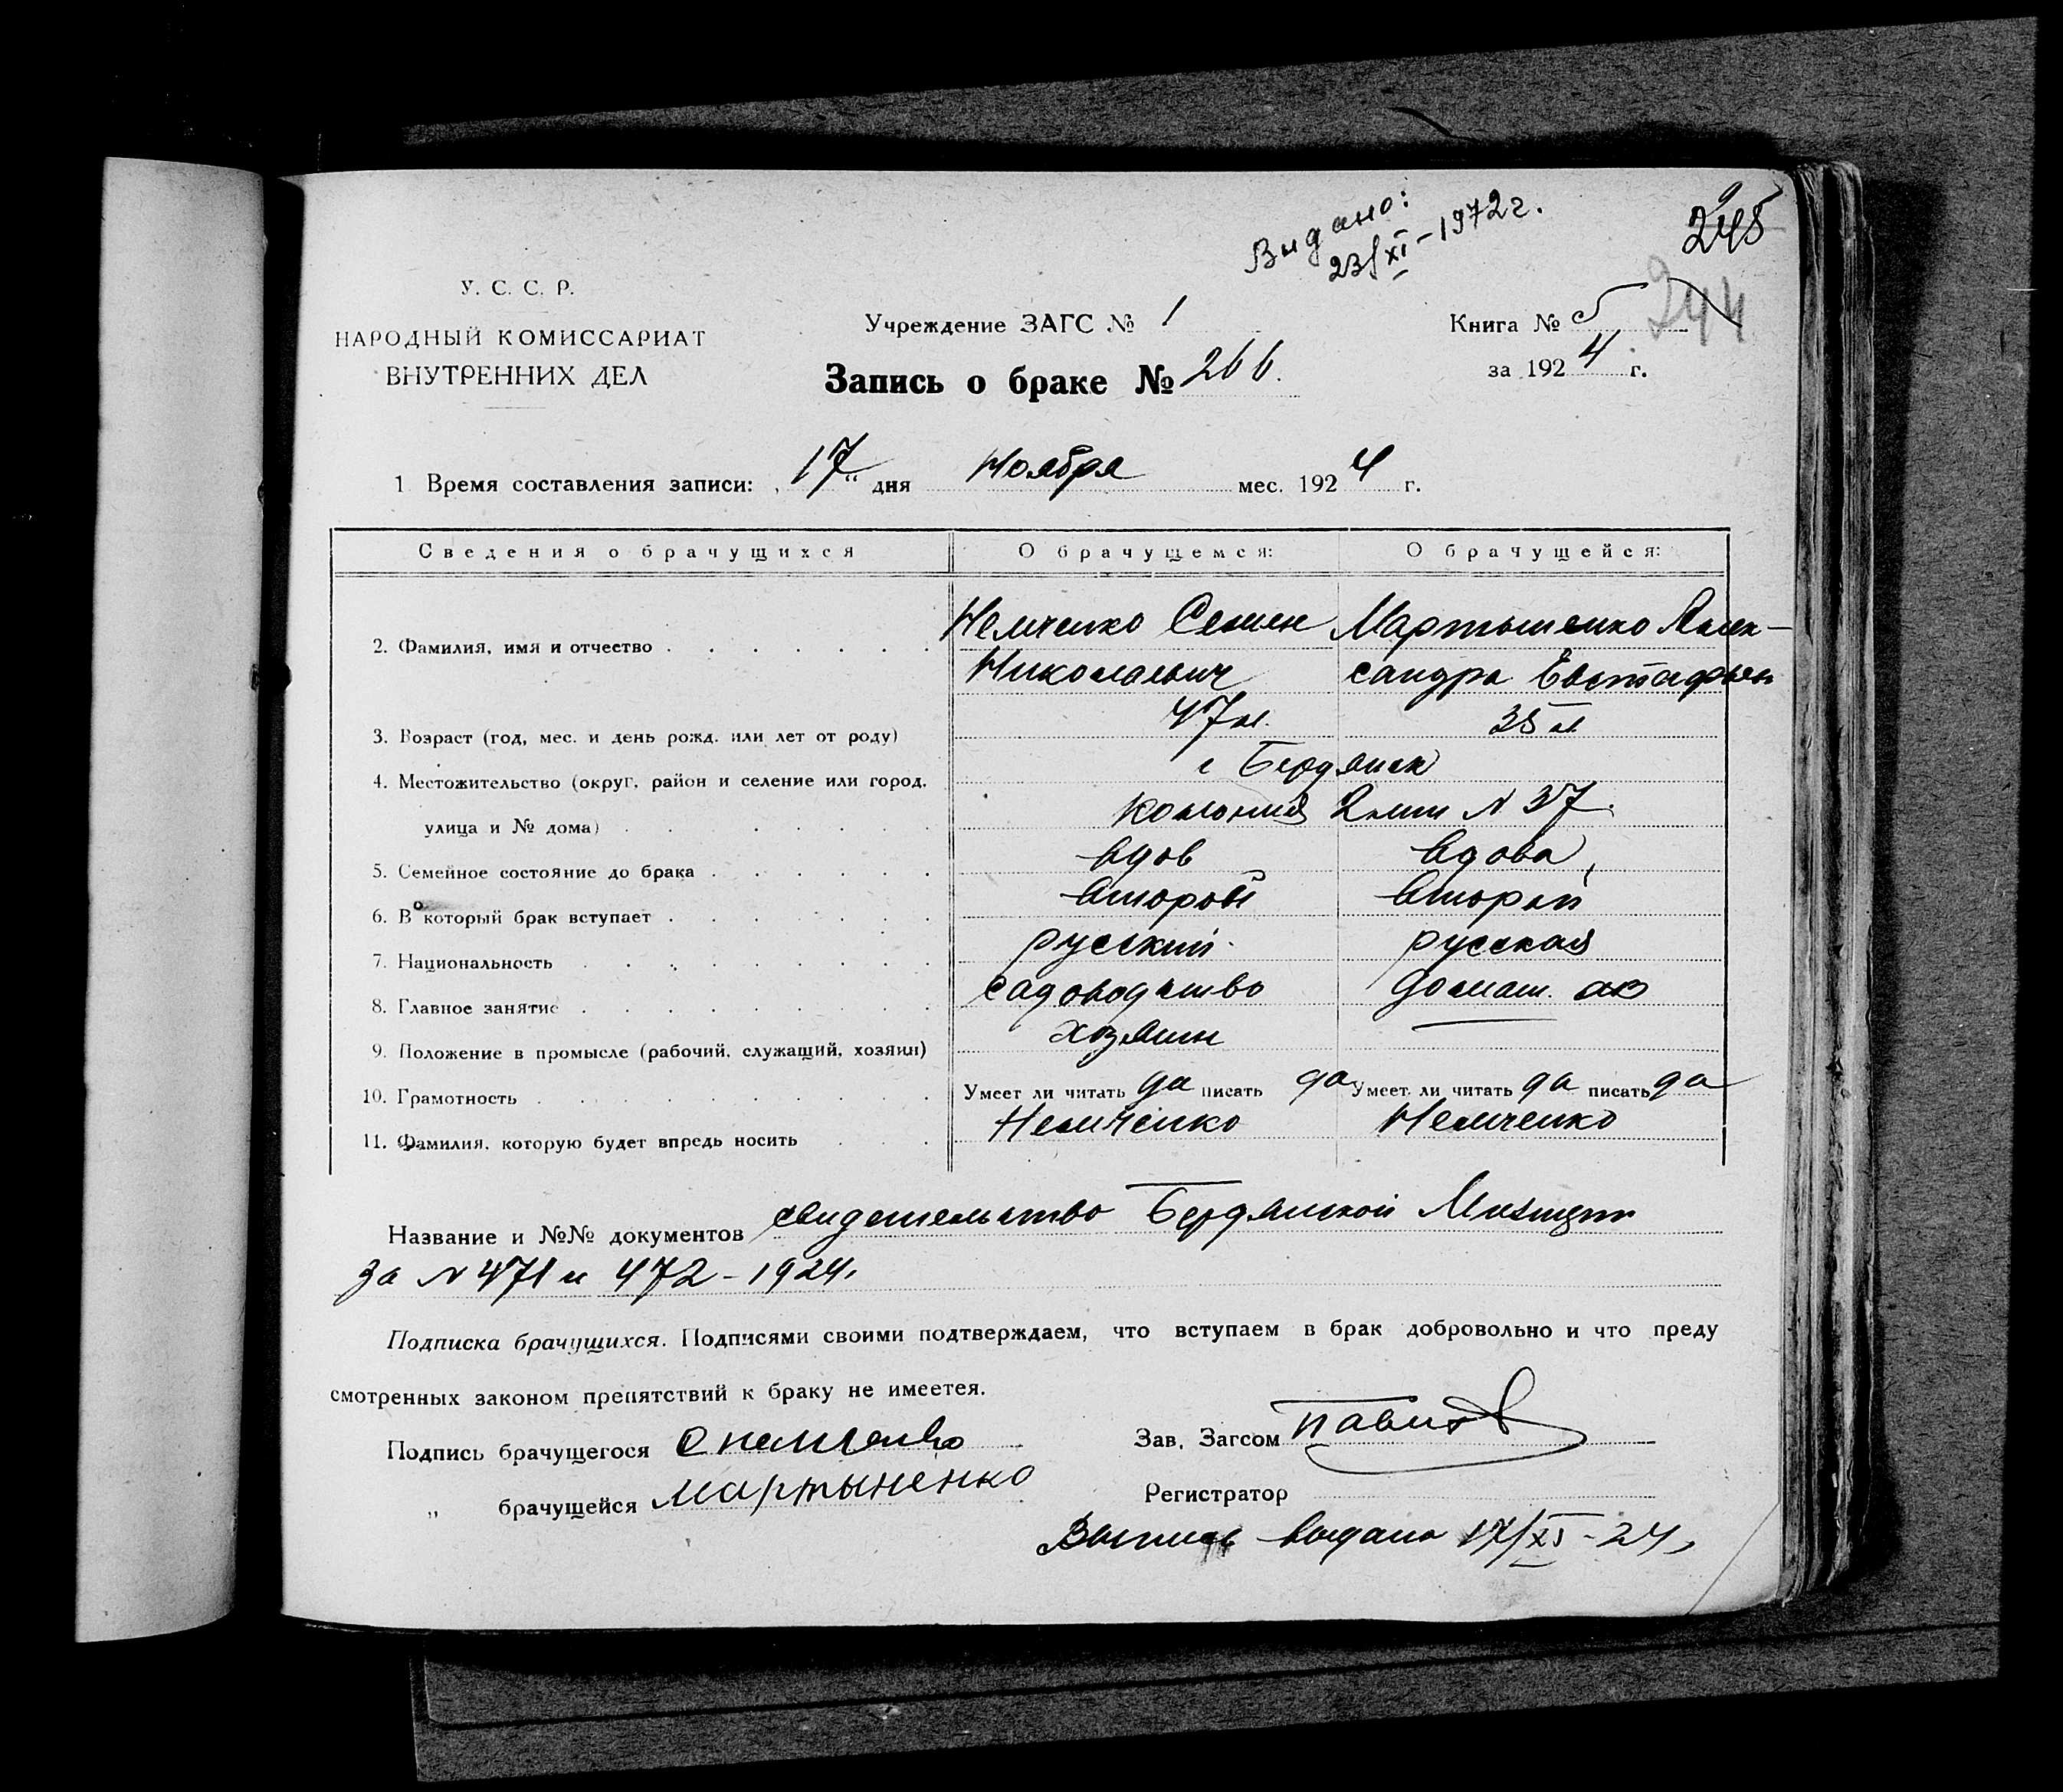 Выдано:
23/XI-1972 г.
245
244
У. С. С. Р.
НАРОДНЫЙ КОМИССАРИАТ
ВНУТРЕННИХ ДЕЛ
Учреждение ЗАГС № 1
Запись о браке № 266.
Книга № 5
за 1924 г.
1 Время составления записи: „17“ дня Ноября мес. 1924 г.
Сведения о брачущихся О брачущемся: О брачущейся:
2. Фамилия, имя и отчество Немченко Семен Мартыненко Алек-
Николаевич сандра Евстафьев
3. Возраст (год, мес. и день рожд. или лет от роду) 47 л. 35 л
4. Местожительство (округ, район и селение или город, г Бердянск
улица и № дома) Колония 2 лит N 37.
5. Семейное состояние до брака вдов вдова,
6. В который брак вступает второй второй
7. Национальность русский русская
8. Главное занятие садоводство домаш. хоз
9. Положение в промысле (рабочий, служащий, хозяин) хозяин —
10. Грамотность Умеет ли читать да писать да Умеет ли читать да писать да
11. Фамилия, которую будет впредь носить Немченко Немченко
Название и №№ документов свидетельство Бердянской
за N 471 и 472 - 1924.
Подписка брачущихся. Подписями своими подтверждаем, что вступаем в брак добровольно и что преду
смотренных законом препятствий к браку не имеетея.
Подпись брачущегося С Немченко
Зав. Загсом
„ брачущейся Мартыненко
Регистратор
Выпись выдана 17/XI-24,